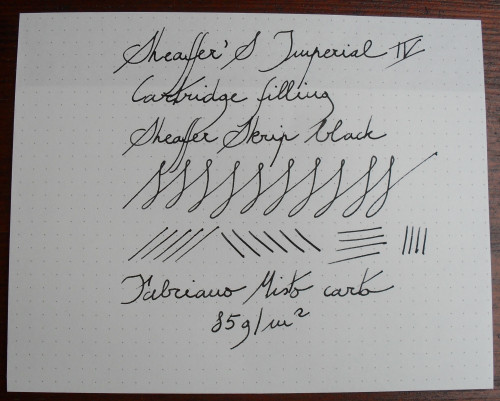 Sheaffer's Imperial IV
Cartridge filling
Sheaffer Skrip black
Fabriano Misto carb
85g/m²